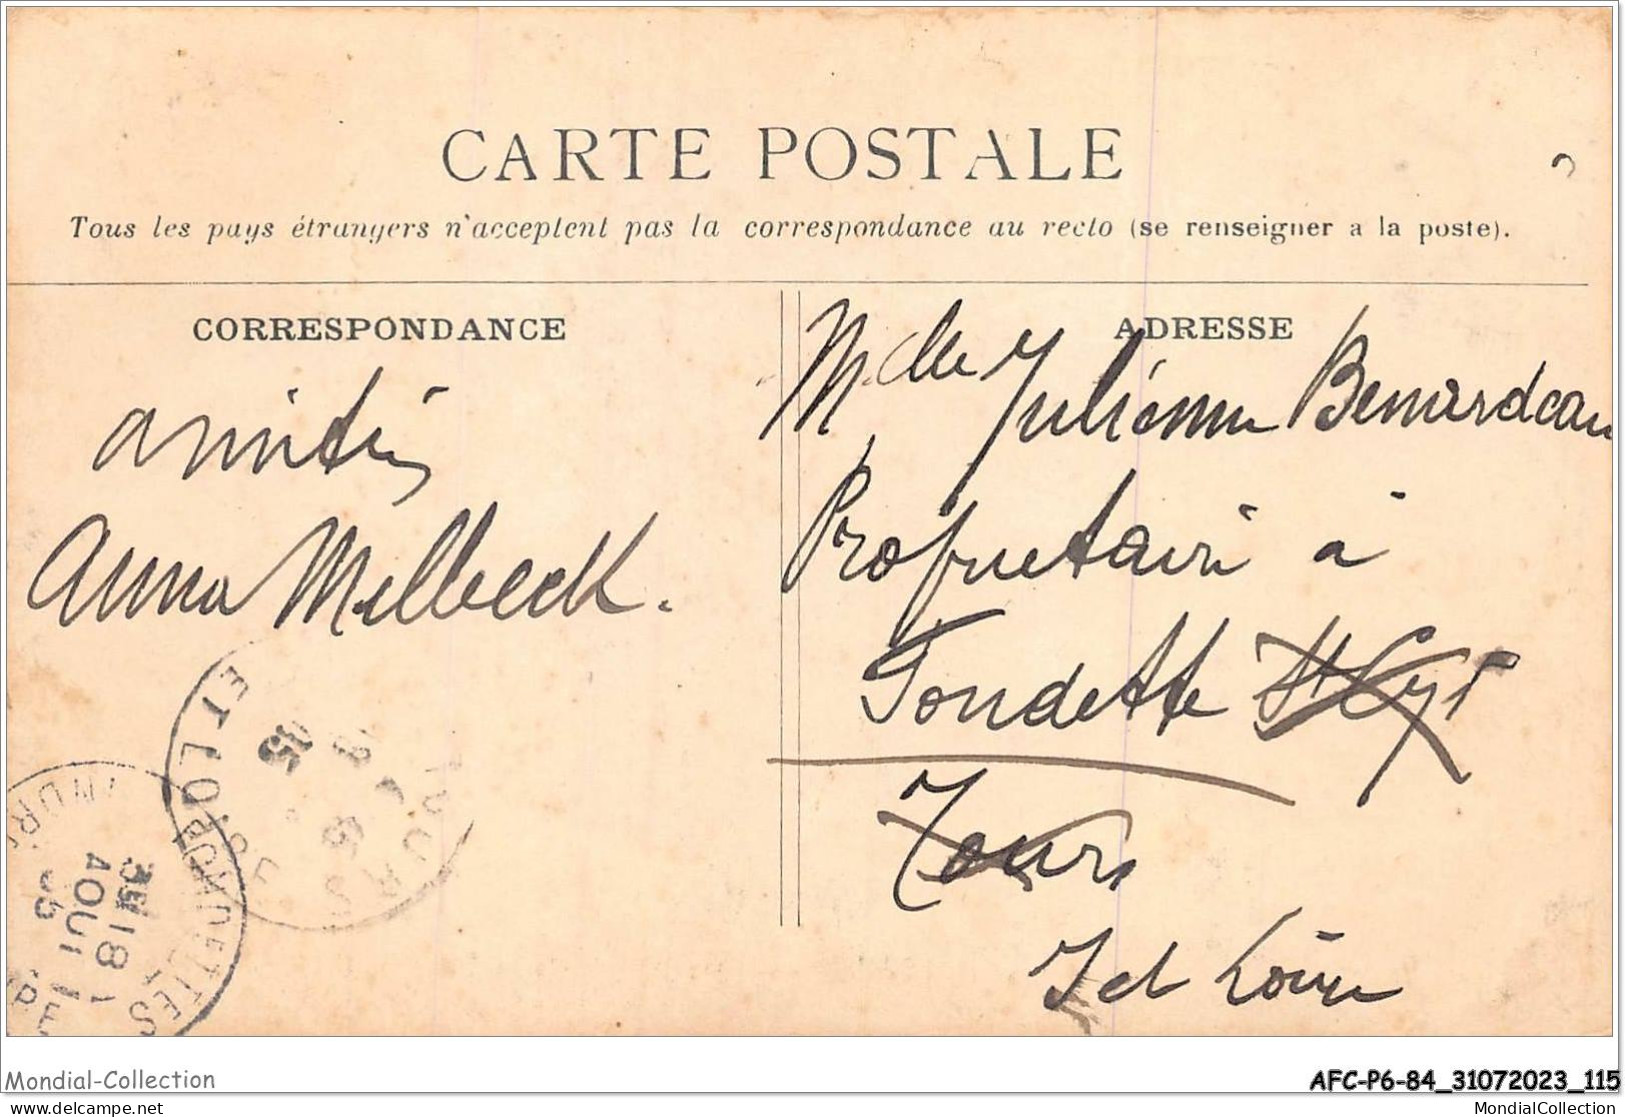 CARTE POSTALE
Tous les pays étrangers n'acceptent pas la correspondance au recto (se renseigner a la poste).
CORRESPONDANCE
amitiés
Anna Melbeeck.
ADRESSE
Melle Julienne Benardeau
Propriétaire à
Fondette St Cyr
Tours
I et Loire
TOURS
ET LOIRE
FONDETTES
INDRE
18
AOUT
05
Mondial-Collection
delcampe.net
AFC-P6-84_31072023_115
MondialCollection